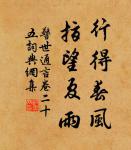 行得春風
指望夏雨
警世通言卷二十
五詞典網集